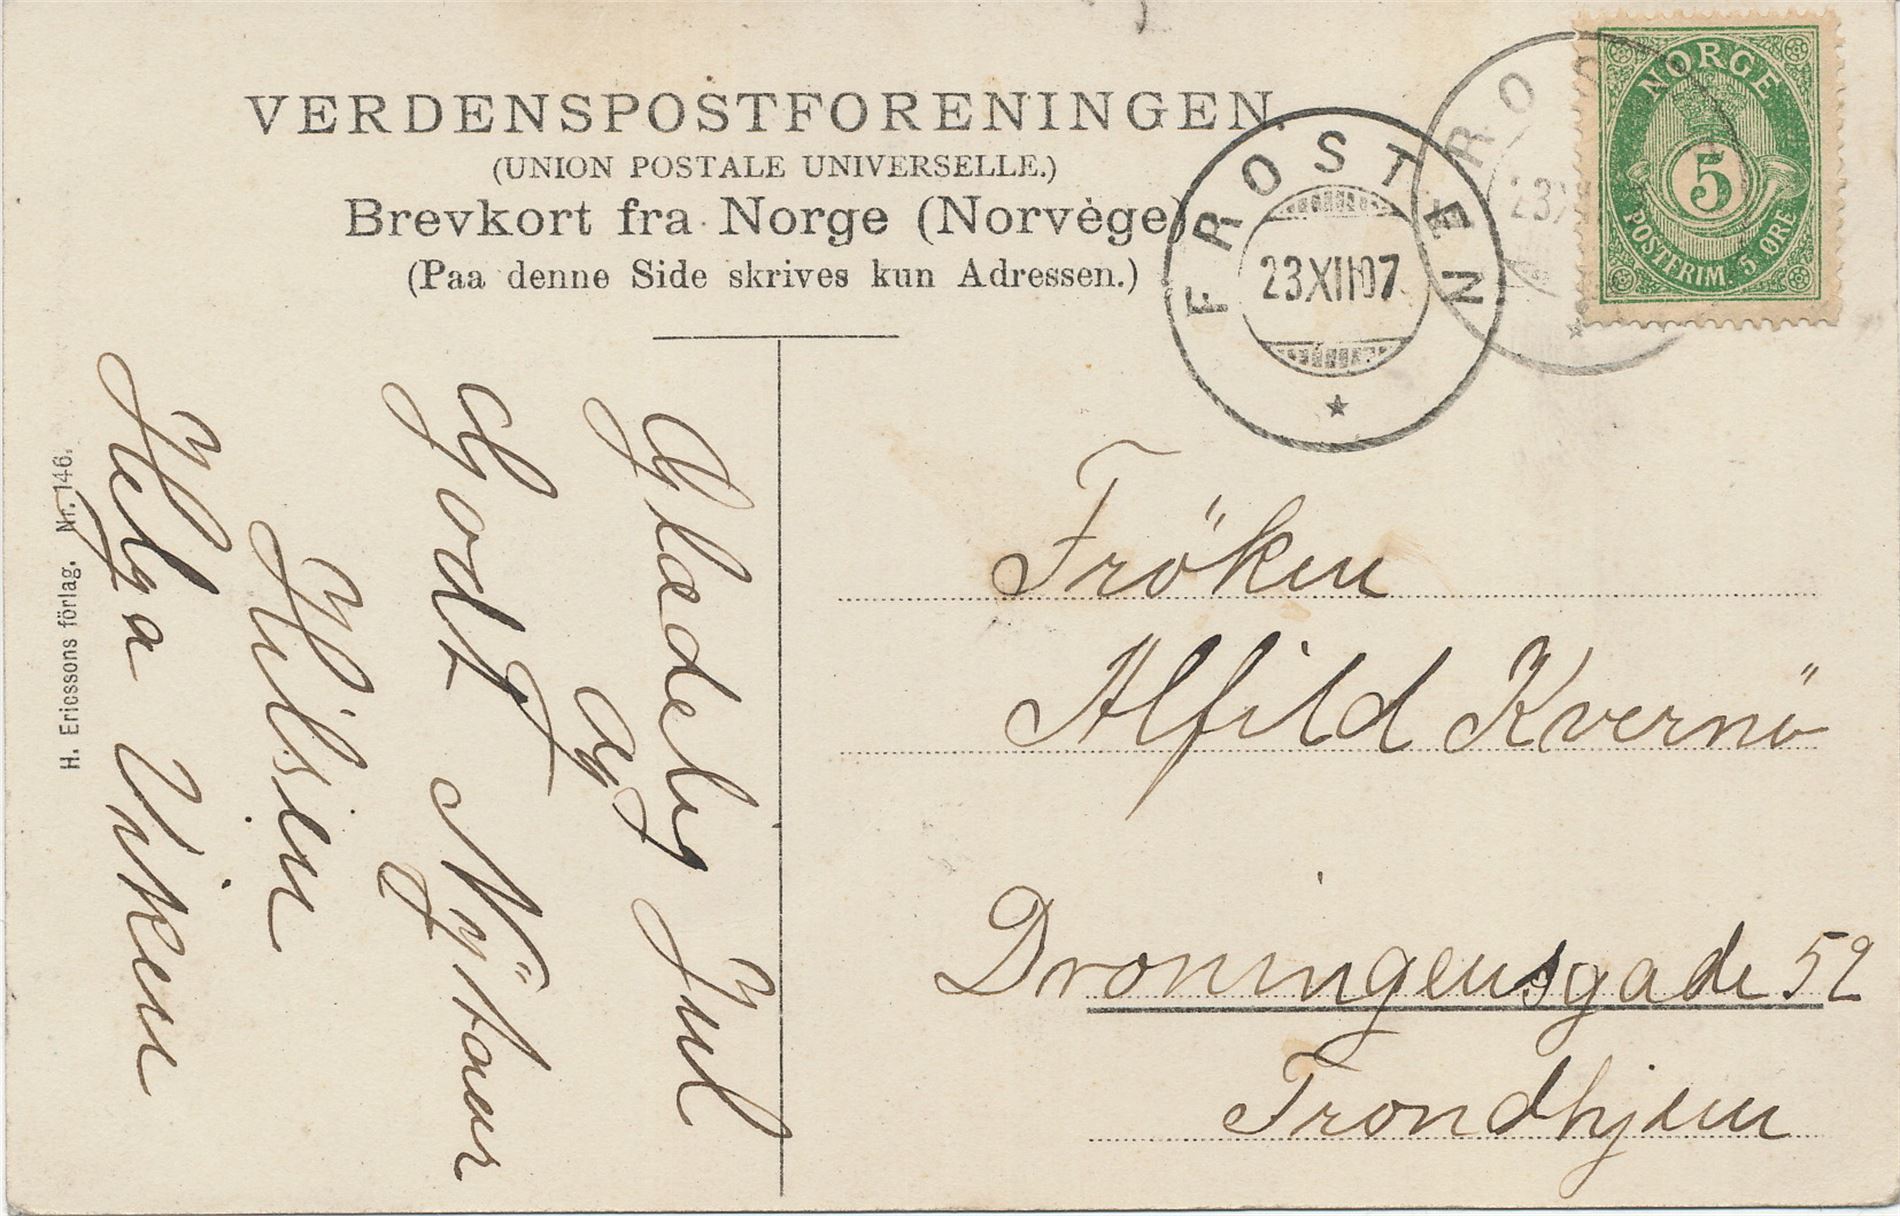 VERDENSPOSTFORENINGEN.
(UNION POSTALE UNIVERSELLE.)
Brevkort fra Norge (Norvège)
(Paa denne Side skrives kun Adressen.)
FROSTEN
23XII07
NORGE
5
POSTFRIM. 5 ØRE
23X
Glædelig Jul
og
Godt Nyttaar
Hilsen
Helga Viken
H. Ericssons förlag. Nr. 146.
Fröken
Alfild Kvernö
Droningensgade 52
Trondhjem